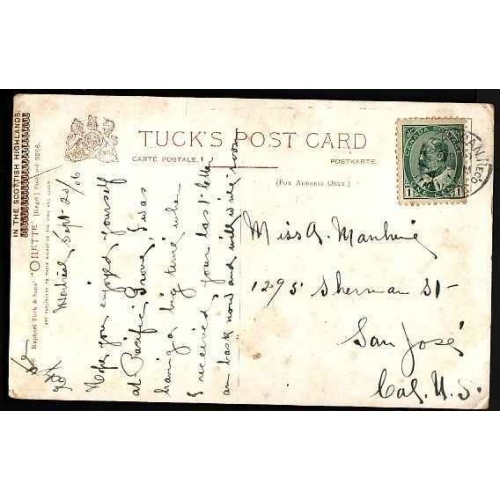 TUCK'S POST CARD
CARTE POSTALE.
POSTKARTE.
(FOR ADDRESS ONLY.)
IN THE SCOTTISH HIGHLANDS.
Raphael Tuck & Sons' "OILETTE" [Regd.] Postcard
CANADA
1 1
Montreal Sept. 20/06
Hope you enjoyed yourself
at Pacific Grove. I was
having a big time when
I received your last letter
am back now and will write soon
Miss A.
1295 Sherman St-
San José
Cal. U.S.